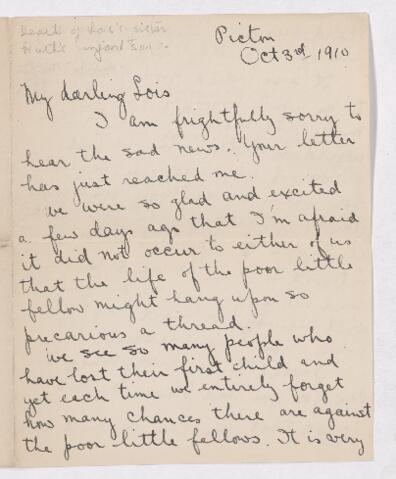 Death of Lois's sister
Ruth's infant son.
Picton
Oct 3rd 1910
My darling Lois
I am frightfully sorry to
hear the sad news. Your letter
has just reached me.
We were so glad and excited
a few days ago that I'm afraid
it did not occur to either of us
that the life of the poor little
fellow might hang upon so
precarious a thread.
We see so many people who
have lost their first child and
yet each time we entirely forget
how many chances there are against
the poor little fellows. It is very